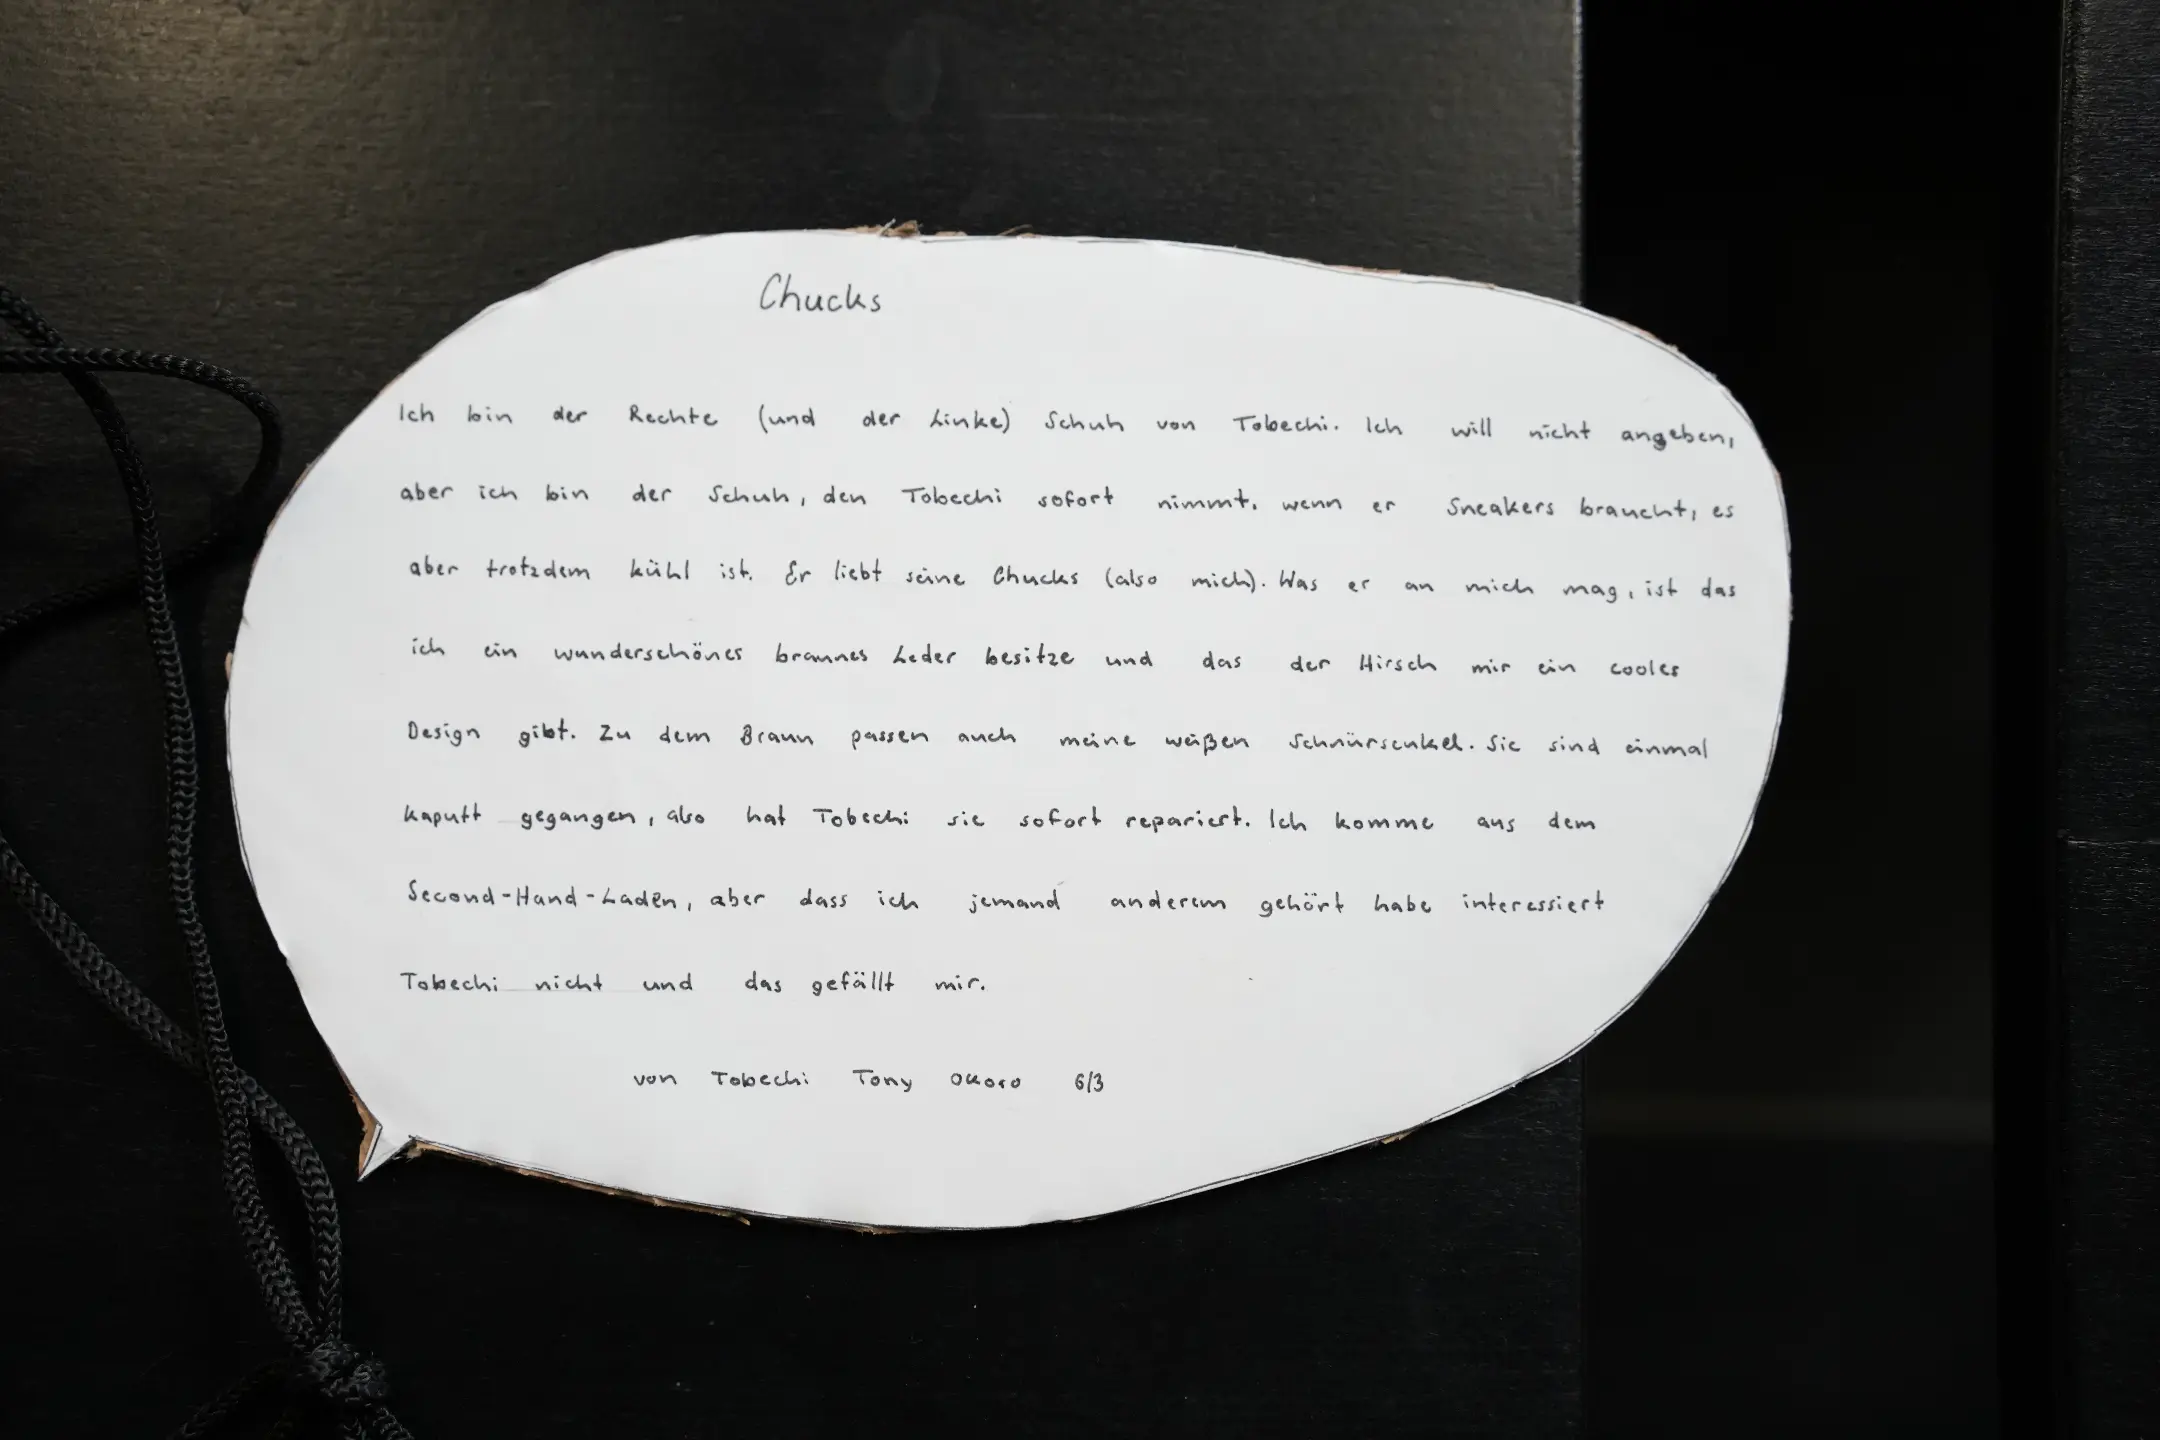 Chucks
Ich bin der Rechte (und der Linke) Schuh von Tobechi. Ich will nicht angeben,
aber ich bin der Schuh, den Tobechi sofort nimmt, wenn er Sneakers braucht, es
aber trotzdem kühl ist. Er liebt seine Chucks (also mich). Was er an mich mag, ist das
ich ein wunderschönes braunes Leder besitze und das der Hirsch mir ein cooles
Design gibt. Zu dem Braun passen auch meine weißen Schnürsenkel. Sie sind einmal
kaputt gegangen, also hat Tobechi sie sofort repariert. Ich komme aus dem
Second-Hand-Laden, aber dass ich jemand anderem gehört habe interessiert
Tobechi nicht und das gefällt mir.
von Tobechi Tony Okoro 6/3